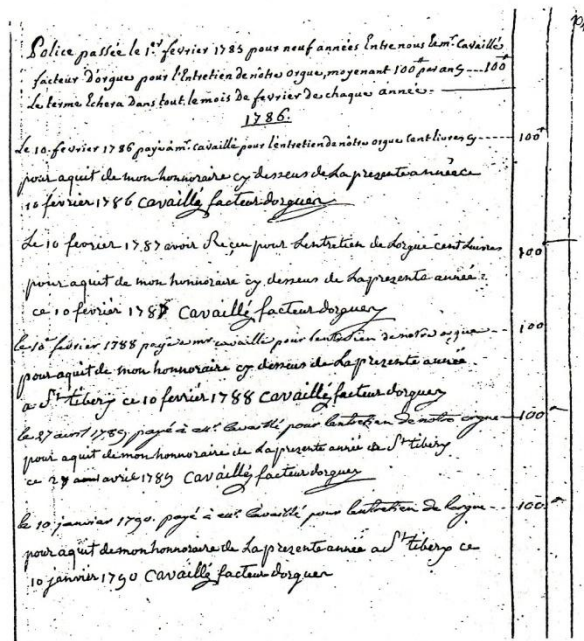 Police passée le 1.er fevrier 1785 pour neuf années Entre nous le mr. Cavaillé
facteur d'orgue pour l'Entretien de nôtre orgue, moyenant 100# par an cy --- 100#
Le terme Echera Dans tout le mois de fevrier de chaque année.
1786.
Le 10. fevrier 1786 payé a mr. Cavaillé pour l'entretien de nôtre orgue Cent livres cy --- 100#
pour aquit de mon honnoraire cy dessus de La prezente année ce
10 fevrier 1786 Cavaillé facteur dorguer
Le 10 fevrier 1787 avoir Reçu pour Lentretien de Lorgue cent Livres --- 100
pour aquit de mon honnoraire cy dessus de La prezente année.
ce 10 fevrier 1787 Cavaillé facteur dorguer
le 10e fevrier 1788 payé a mr cavaillé pour lentretien de notre orgue --- 100
pour aquit de mon honnoraire cy dessus de La prezente année
a St tibery ce 10 fevrier 1788 Cavaillé facteur dorguer
le 27 avril 1789 payé à mr. Cavaillé pour lentretien de notre orgue --- 100
pour aquit de mon honnoraire de La prezente année a St tibery
ce 27 avril 1789 Cavaillé facteur dorguer
le 10 janvier 1790. payé à mr. Cavaillé pour lentretien de lorgue --- 100.
pour aquit de mon honnoraire de La prezente année a St tibery ce
10 janvier 1790 Cavaillé facteur dorguer